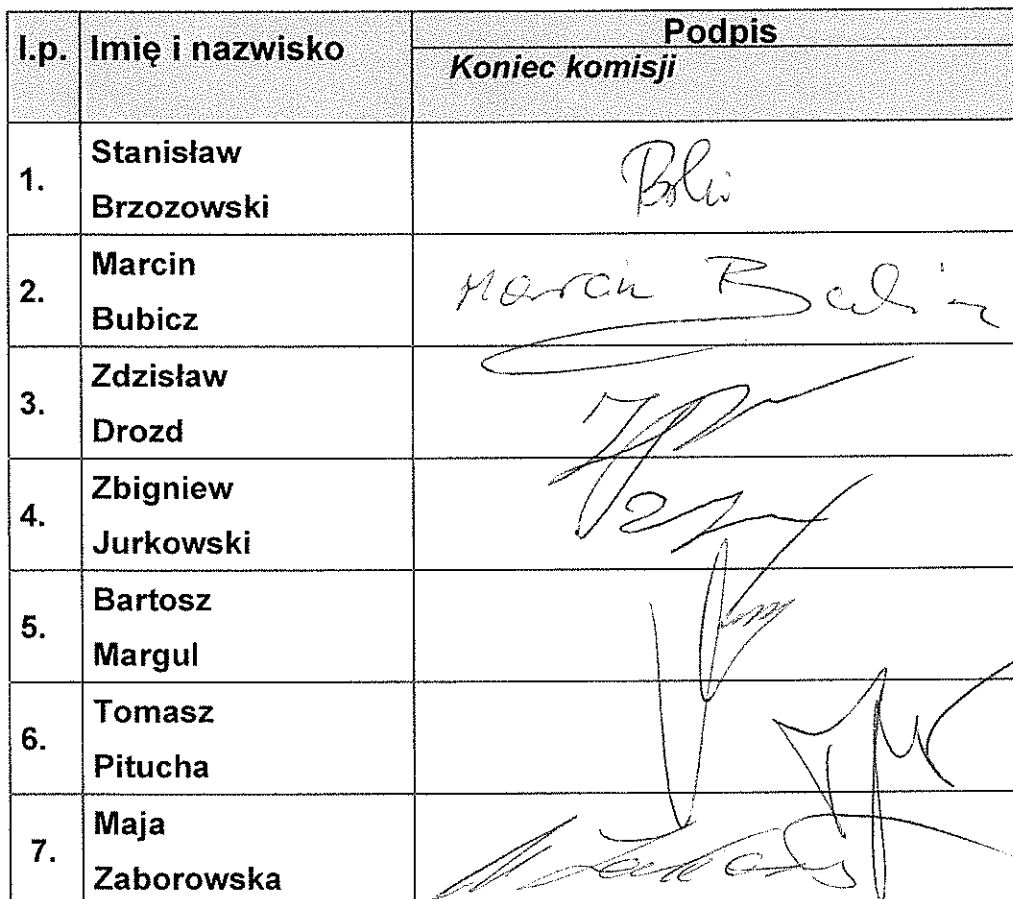 l.p. Imię i nazwisko Podpis
Koniec komisji
1. Stanisław
Brzozowski
2. Marcin
Bubicz
Marcin
3. Zdzisław
Drozd
4. Zbigniew
Jurkowski
5. Bartosz
Margul
6. Tomasz
Pitucha
7. Maja
Zaborowska